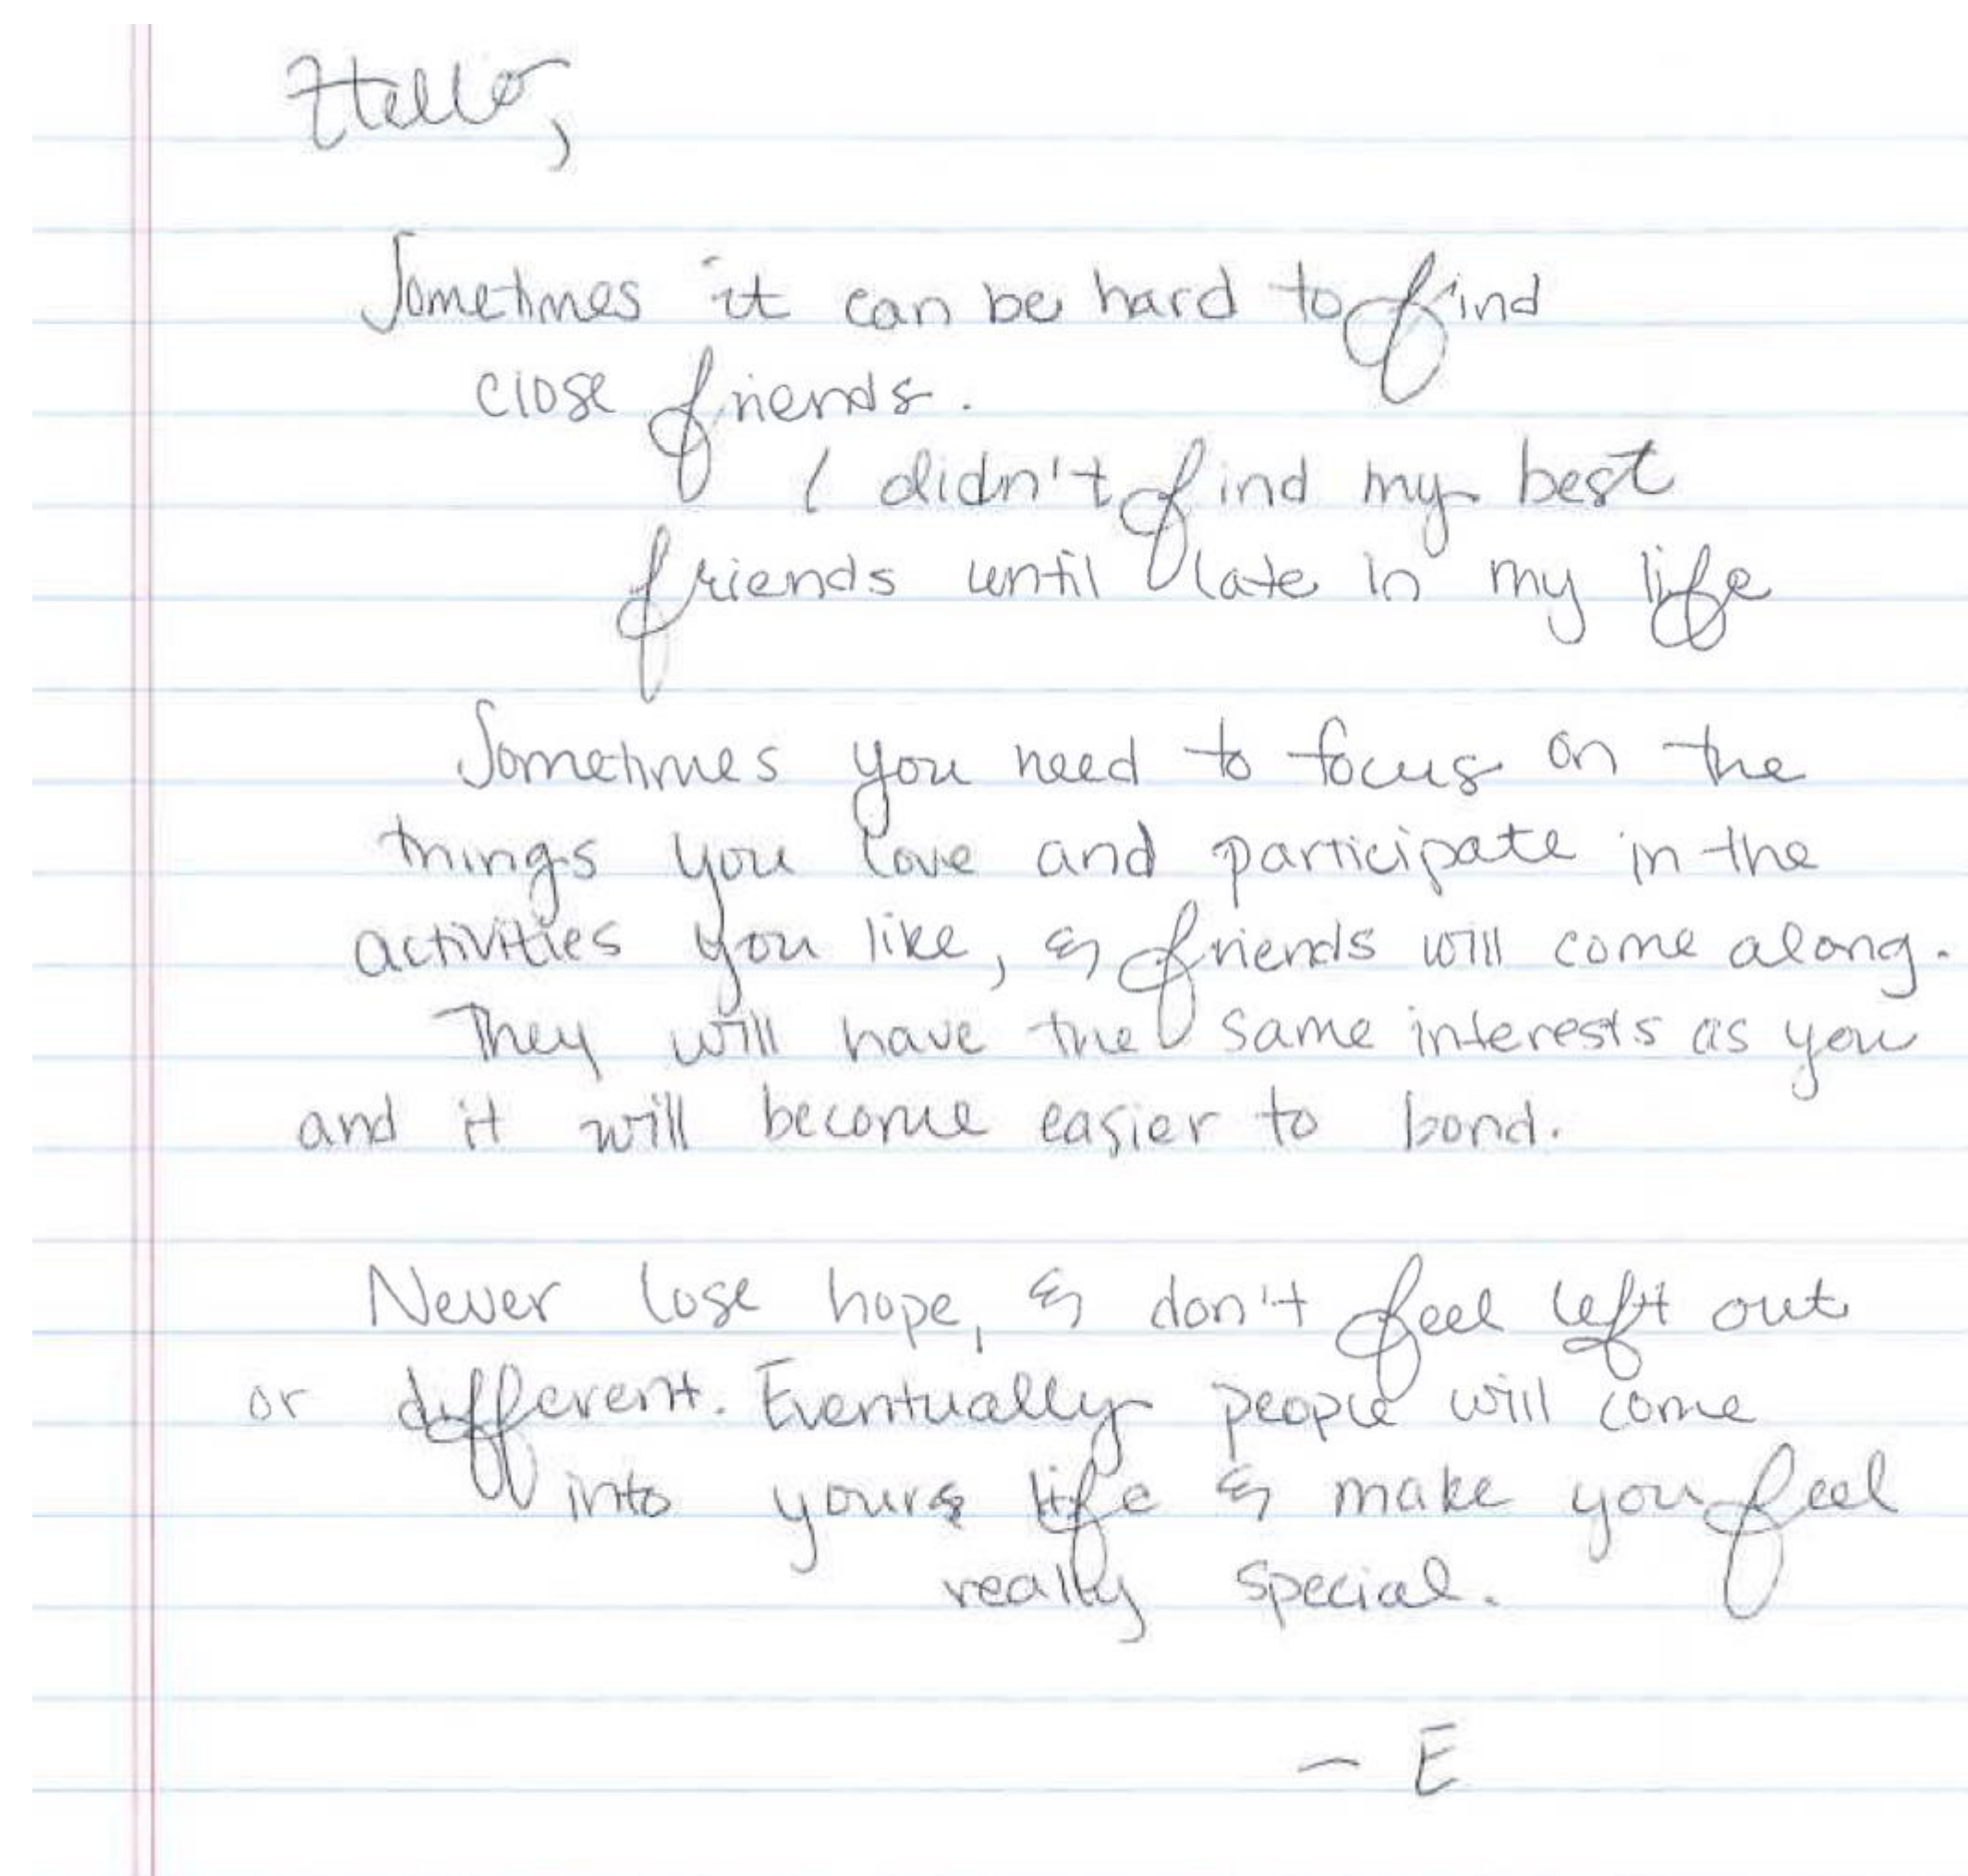 Hello,
Sometimes it can be hard to find
close friends.
I didn't find my best
friends until late in my life
Sometimes you need to focus on the
things you love and participate in the
activities you like, & friends will come along.
They will have the same interests as you
and it will become easier to bond.
Never lose hope, & don't feel left out
or different. Eventually people will come
into yours life & make you feel
really special.
- E